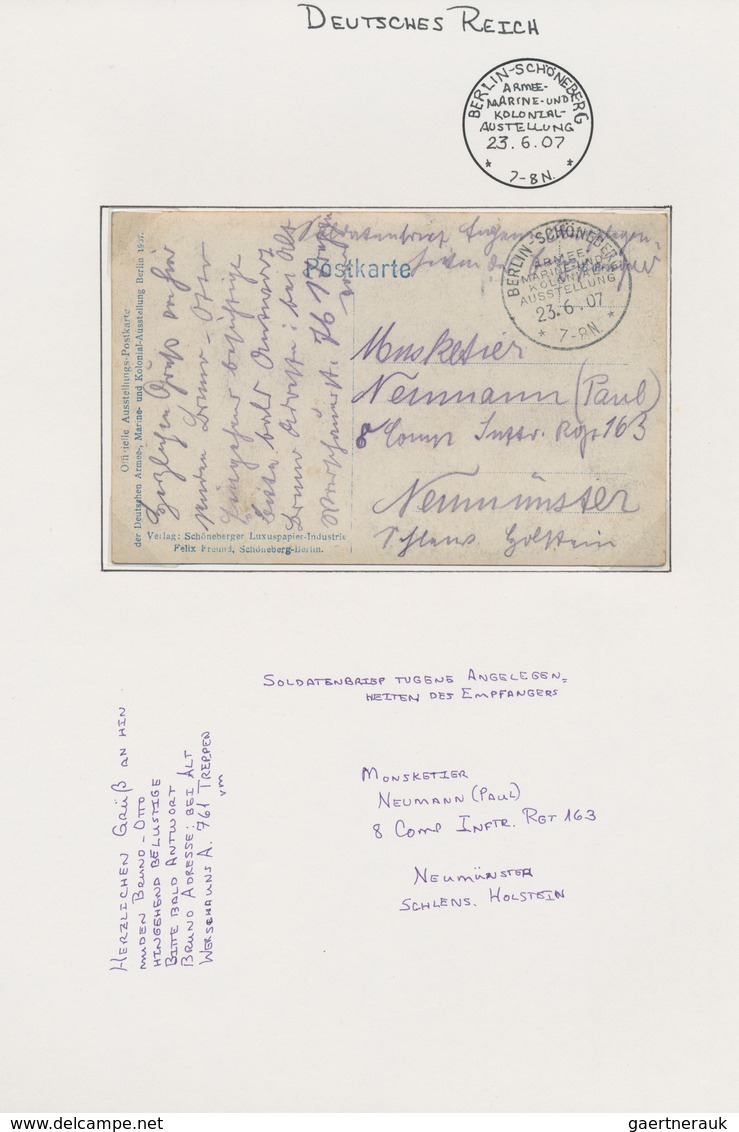 DEUTSCHES REICH
BERLIN-SCHÖNEBERG
ARMEE-
MARINE-UND
KOLONIAL-
AUSTELLUNG
23.6.07
* 7-8N. *
Postkarte
BERLIN-SCHÖNEBERG
ARMEE-
MARINE-UND
KOLONIAL-
AUSSTELLUNG
23.6.07
* 7-8N. *
Soldatenbrief
Offizielle Ausstellungs-Postkarte
der Deutschen Armee-, Marine- und Kolonial-Ausstellung Berlin 1907.
Herzlichen Gruß
Bruno-Otto
bald Antwort
Bruno Adresse: bei Alt
Verlag: Schöneberger Luxuspapier-Industrie
Felix Freund, Schöneberg-Berlin.
Musketier
Neumann (Paul)
8 Comp Inftr. Rgt 163
Neumünster
Schlesw. Holstein
SOLDATENBRIEF TUGENE ANGELEGEN=
HEITEN DES EMPFANGERS
MONSKETIER
NEUMANN (PAUL)
8 COMP INFTR. RGT 163
NEUMÜNSTER
SCHLENS. HOLSTEIN
HERZLICHEN GRÜß AN HIN
NUDEN BRUNO-OTTO
HINGEHEND BELUSTIGE
BITTE BALD ANTWORT
BRUNO ADRESSE: BEI ALT
WERSCHAUNS A. 761 TREPPEN
VM
www.delcampe.net
gaertnerauk